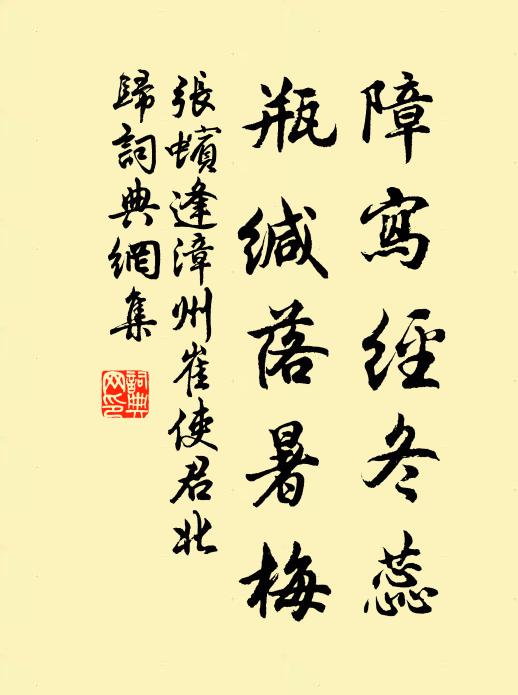 障寫經冬蕊
瓶緘落暑梅
張蠙逢漳州崔使君北
歸詞典網集
詞典
网印